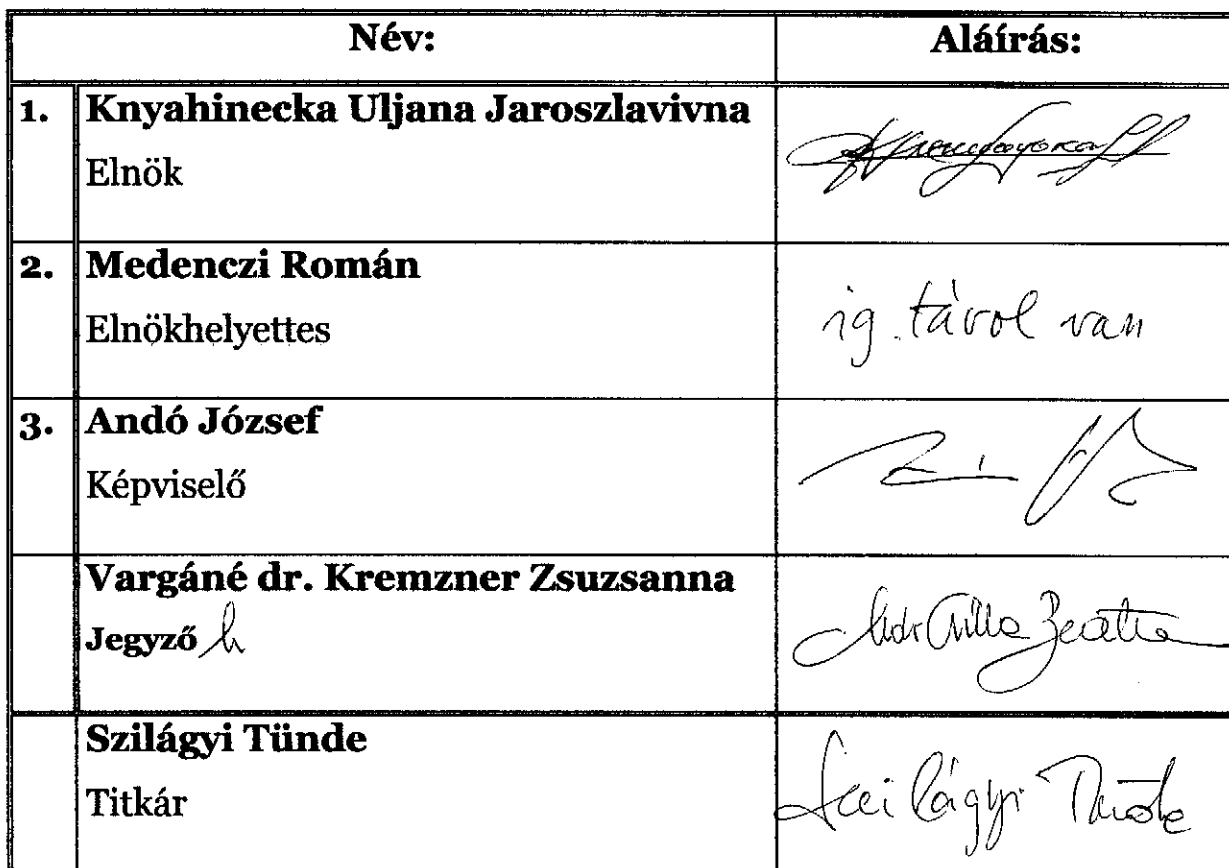 Név: Aláírás:
1. Knyahinecka Uljana Jaroszlavivna
Elnök
2. Medenczi Román
Elnökhelyettes
ig. távol van
3. Andó József
Képviselő
Vargáné dr. Kremzner Zsuzsanna
Jegyző h
Szilágyi Tünde
Titkár
Szilágyi Tünde